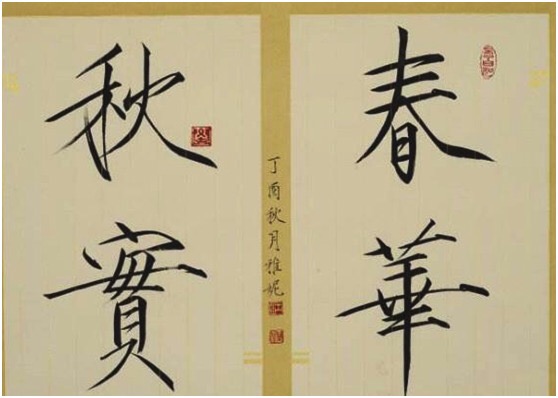 春華
秋實
丁酉秋月雅妮